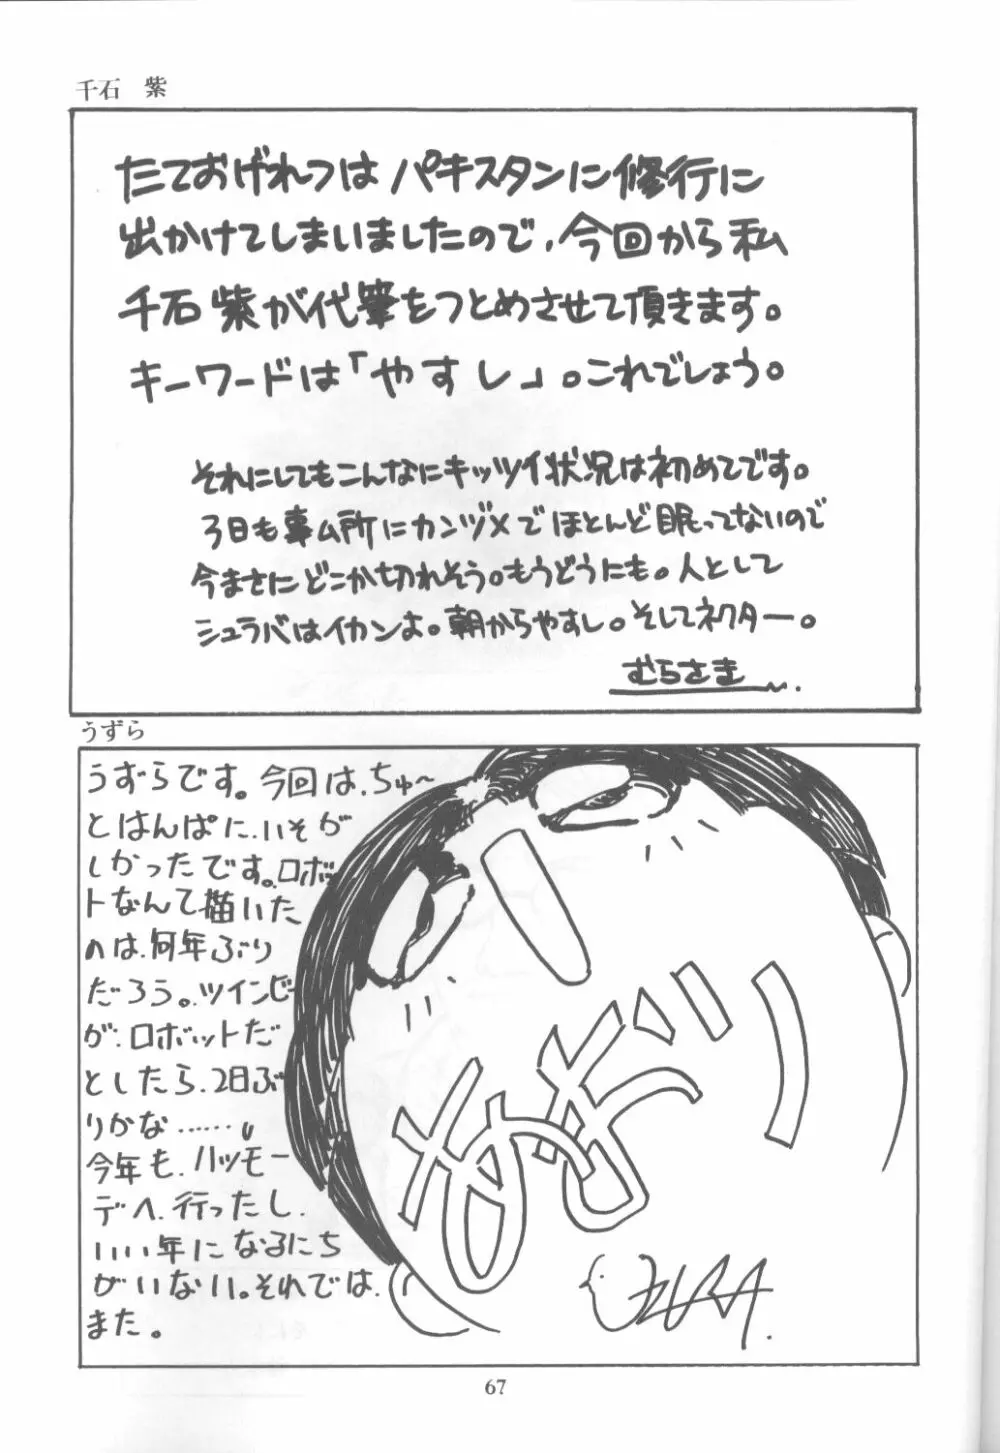 千石　紫
たておげれつは パキスタンに修行に
出かけてしまいましたので、今回から私
千石紫が代筆をつとめさせて頂きます。
キーワードは「やすし」。これでしょう。
それにしてもこんなにキッツイ状況は初めてです。
3日も事ム所にカンヅメでほとんど眠ってないので
今まさにどこか切れそう。もうどうにも。人として
シュラバはイカンよ。朝からやすし。そしてネクター。
むらさき
うずら
うずらです。今回は、ちゅ〜
とはんぱに、いそが
しかったです。ロボッ
トなんて描いた
のは、何年ぶり
だろう。ツインビー
が、ロボットだ
としたら、2日ぶ
りかな……。
今年も、ハツモー
デへ、行ったし、
いい年になるにち
がいない。それでは、
また。
UZURA.
67